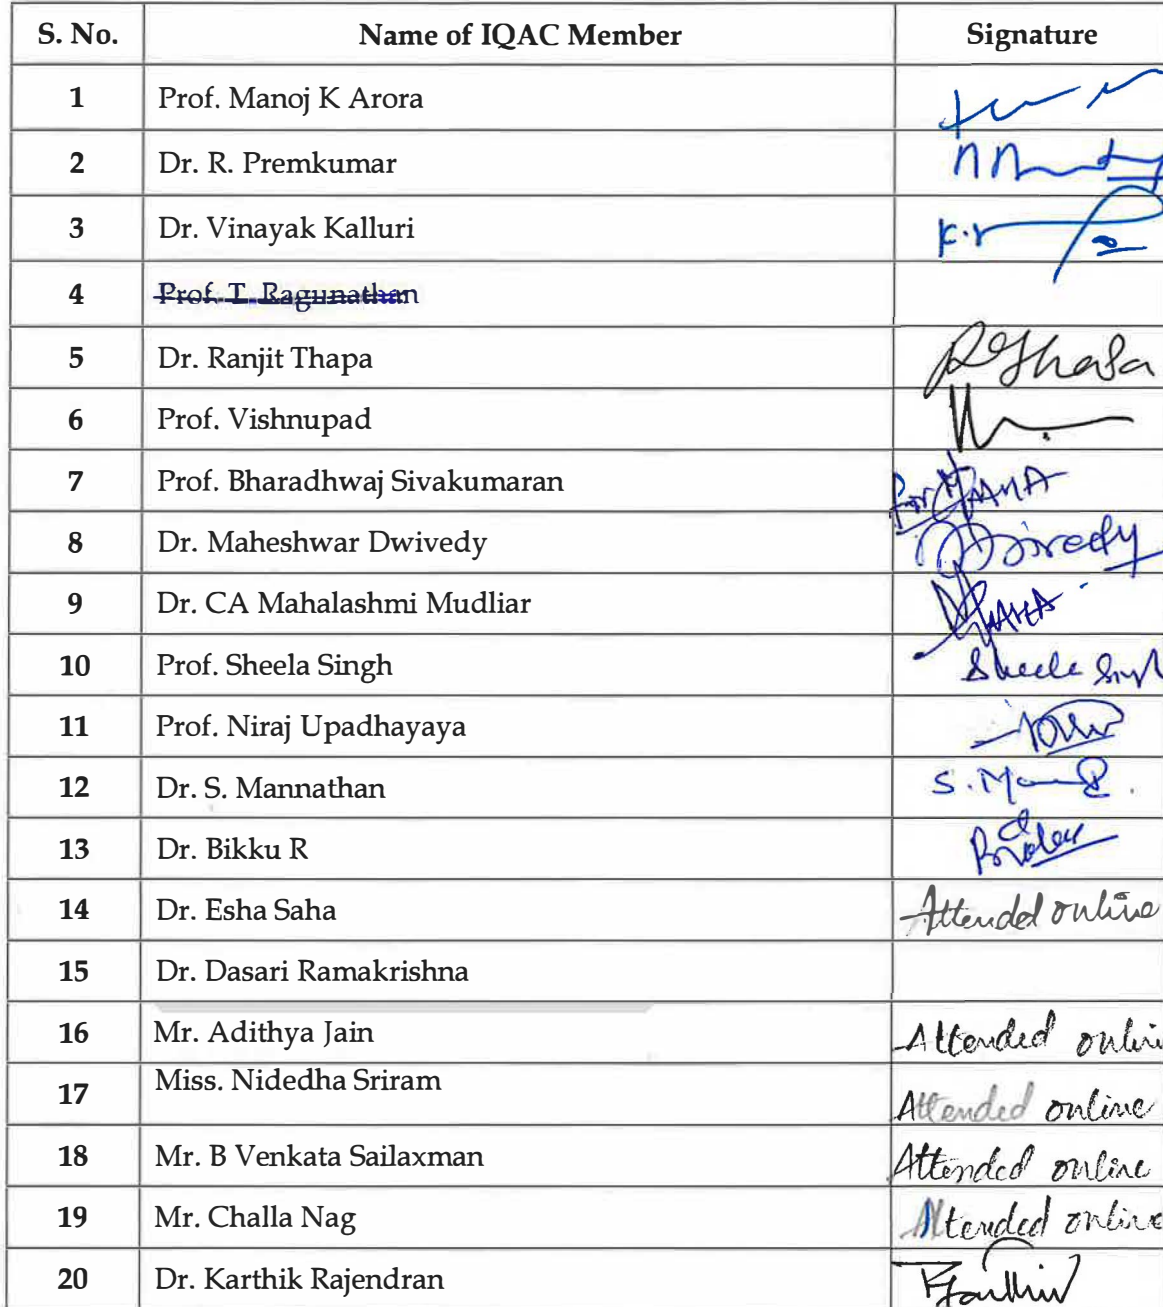 S. No. Name of IQAC Member Signature
1 Prof. Manoj K Arora
2 Dr. R. Premkumar
3 Dr. Vinayak Kalluri K.V
4 Prof. T. Ragunathan
5 Dr. Ranjit Thapa
6 Prof. Vishnupad
7 Prof. Bharadhwaj Sivakumaran For
8 Dr. Maheshwar Dwivedy
9 Dr. CA Mahalashmi Mudliar
10 Prof. Sheela Singh Sheela Singh
11 Prof. Niraj Upadhayaya
12 Dr. S. Mannathan S.
13 Dr. Bikku R
14 Dr. Esha Saha Attended online
15 Dr. Dasari Ramakrishna
16 Mr. Adithya Jain Attended onli
17 Miss. Nidedha Sriram Attended online
18 Mr. B Venkata Sailaxman Attended online
19 Mr. Challa Nag Attended online
20 Dr. Karthik Rajendran